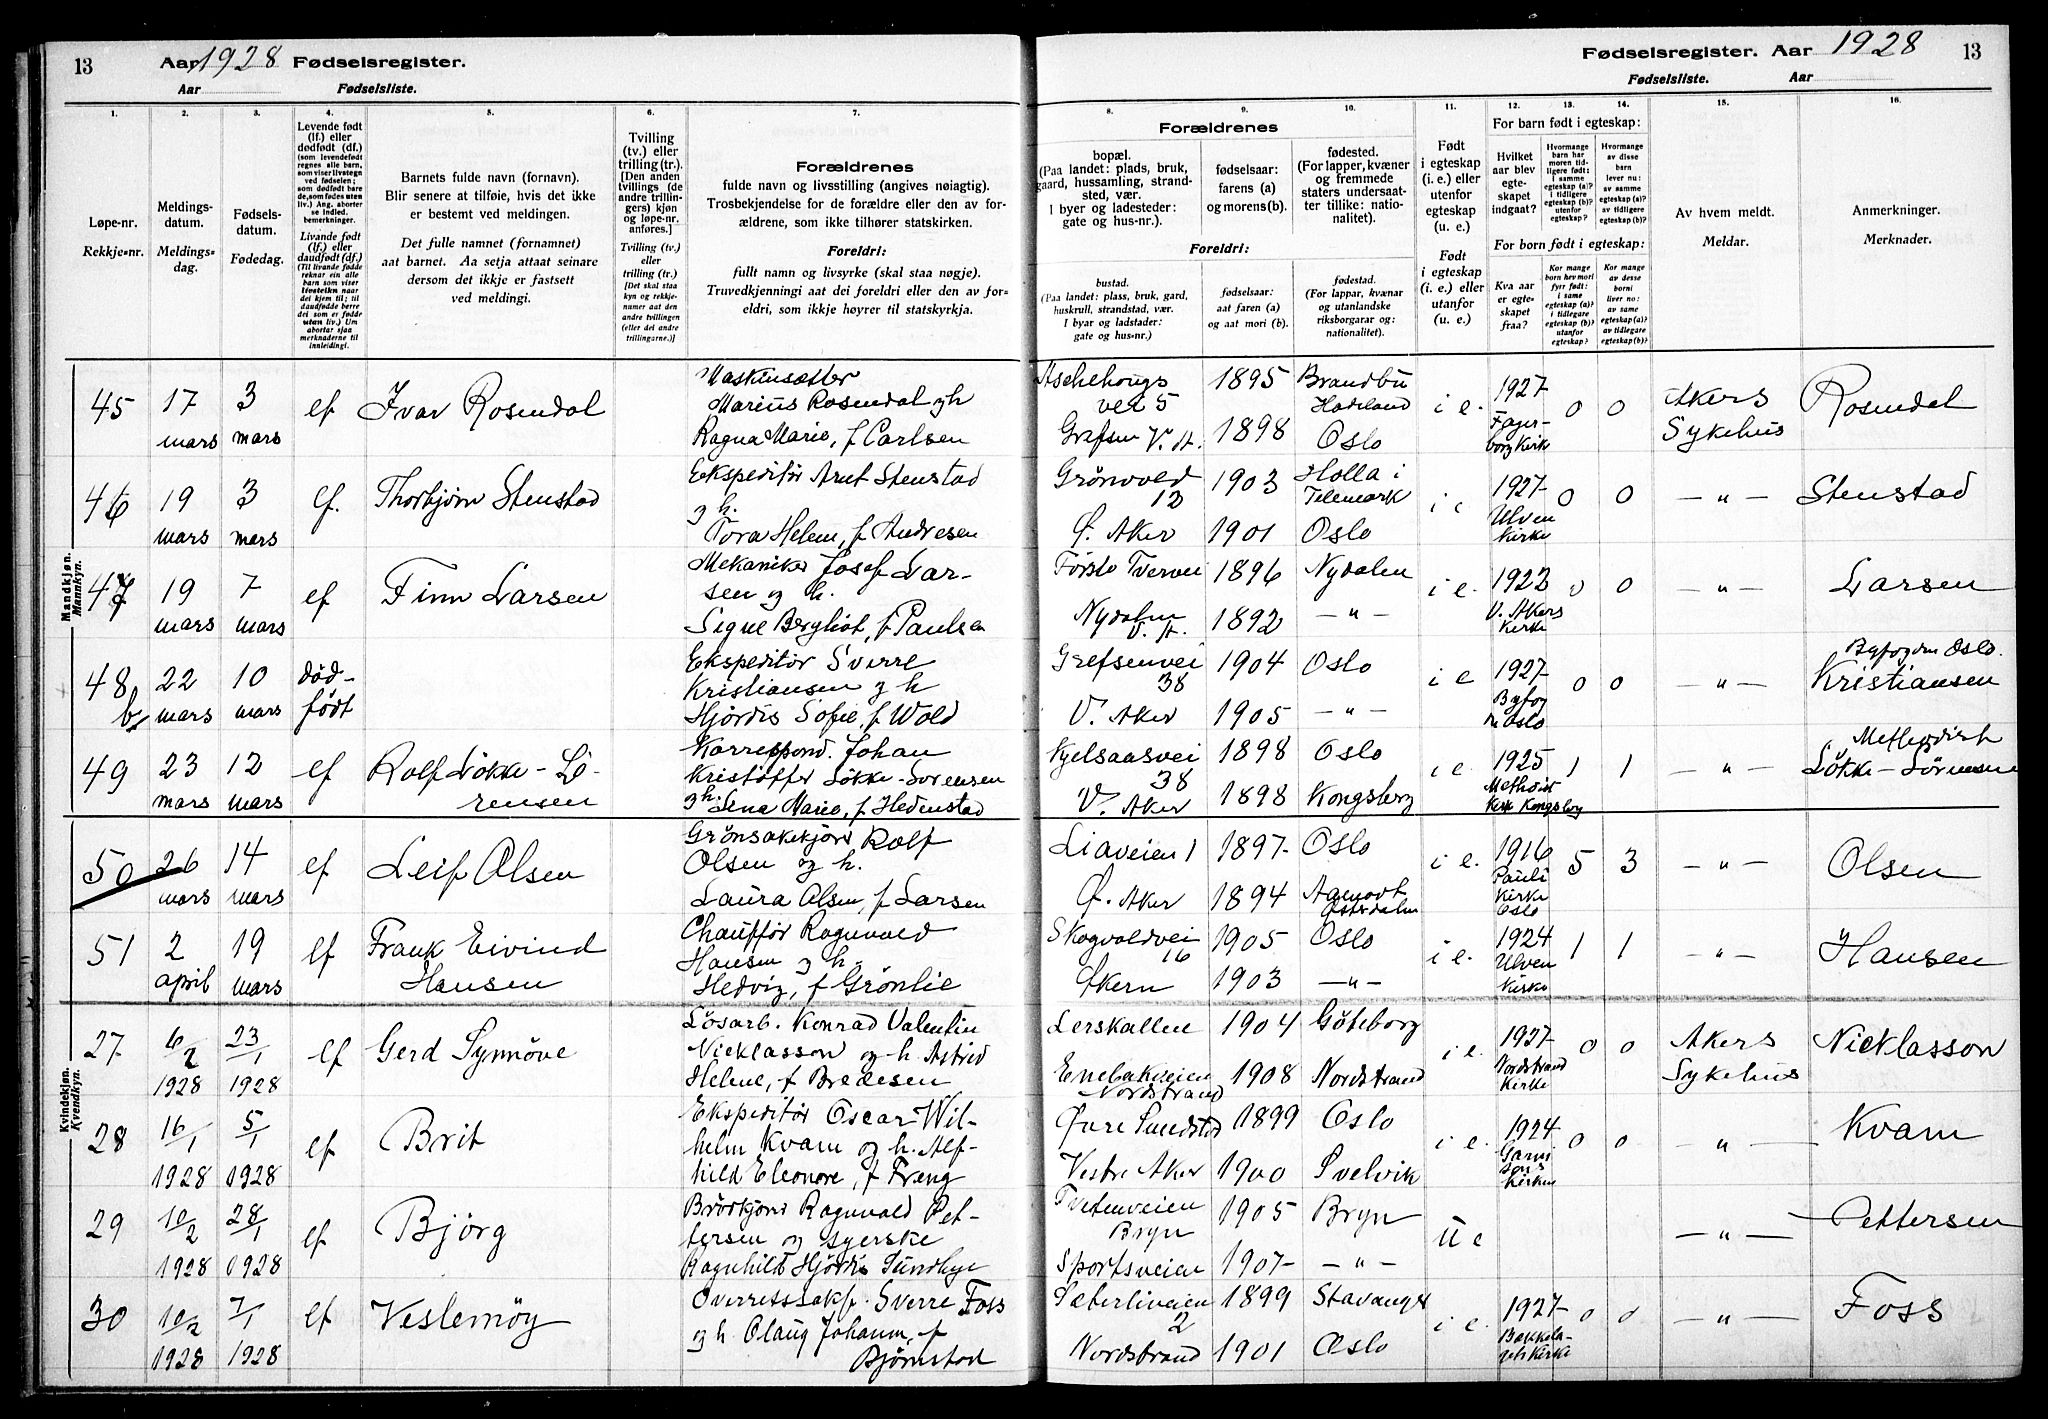 13 Aar 1928 Fødselsregister.
Aar Fødselsliste.
Fødselsregister. Aar 1928 13
Fødselsliste. Aar
1. 2. 3. 4. 5. 6. 7. 8. 9. 10. 11. 12. 13. 14. 15. 16.
Løpe-nr.
Rekkje-nr.
Meldings-
datum.
Meldings-
dag.
Fødsels-
datum.
Fødedag.
Levende født
(lf.) eller
dødfødt (df.)
(som levendefødt
regnes alle barn,
som viser livstegn
ved fødselen;
som dødfødt bare
de, som fødes uten
liv.) Ang. aborter
se indled.
bemerkninger.
Livande født
(lf.) eller
daudfødt (df.)
(Til livande fødde
reknar ein alle
barn som viser
livsteikn naar
dei kjem til; til
daudfødde berre
dei som er fødde
utan liv.) Um
abortar sjaa
merknaderne til
innleidingi.
Barnets fulde navn (fornavn).
Blir senere at tilføie, hvis det ikke
er bestemt ved meldingen.
Det fulle namnet (fornamnet)
aat barnet. Aa setja attaat seinare
dersom det ikkje er fastsett
ved meldingi.
Tvilling
(tv.) eller
trilling (tr.)
[Den anden
tvillings (de
andre trillin-
gers) kjøn
og løpe-nr.
anføres.]
Tvilling (tv.)
eller
trilling (tr.)
[Det skal staa
kyn og rekkje-
numer aat den
andre tvillingen
(eller dei andre
trillingarne.)]
Forældrenes
fulde navn og livsstilling (angives nøiagtig).
Trosbekjendelse for de forældre eller den av for-
ældrene, som ikke tilhører statskirken.
Foreldri:
fullt namn og livsyrke (skal staa nøgje).
Truvedkjenningi aat dei foreldri eller den av for-
eldri, som ikkje høyrer til statskyrkja.
Forældrenes
bopæl.
(Paa landet: plads, bruk,
gaard, hussamling, strand-
sted, vær.
I byer og ladesteder:
gate og hus-nr.).
fødselsaar:
farens (a)
og morens (b).
fødested.
(For lapper, kvæner
og fremmede
staters undersaat-
ter tillike: natio-
nalitet).
Foreldri:
bustad.
(Paa landet: plass, bruk, gard,
huskrull, strandstad, vær.
I byar og ladstader:
gate og hus-nr.)
fødselsaar:
aat faren (a)
og aat mori (b).
fødestad.
(For lappar, kvænar
og utanlandske
riksborgarar og:
nationalitet).
Født
i egteskap
(i. e.) eller
utenfor
egteskap
(u. e.)
Født
i egteskap
(i. e.) eller
utanfor
egteskap
(u. e.)
For barn født i egteskap:
Hvilket
aar blev
egte-
skapet
indgaat?
Hvormange
barn har
moren tid-
ligere født:
i samme
egteskap (a)?
i tidligere
egteskap (b)?
utenfor
egteskap?
Hvormange
av disse
barn
lever nu:
av samme
egteskap (a)?
av tidligere
egteskap (b)?
For born født i egteskap:
Kva aar
er egte-
skapet
fraa?
Kor mange
born hev mori
fyrr født:
i same
egteskap (a)?
i tidlegare
egteskap (b)?
utanfor
egteskap?
Kor mange
av desse
borni
liver no:
av same
egteskap (a)?
av tidlegare
egteskap (b)?
Av hvem meldt.
Meldar.
Anmerkninger.
Merknader.
Mandkjøn.
Mannkyn.
45 17 mars 3 mars lf Ivar Rosendal
Maskinsætter
Marius Rosendal og h
Ragna Marie, f Carlsen
Aschehougs vei 5 1895 Brandbu Hadeland
Grefsen V. A. 1898 Oslo
i e. 1927 Fagerborg Kirk 0 0 Akers Sykehus Rosendal
46 19 mars 3 mars lf. Thorbjørn Stenstad
Ekspeditør Arnt Stenstad
og h.
Tora Helene, f Andresen
Grønvold 12 1903 Holla i Telemark
Ø. Aker 1901 Oslo
i e 1927 Ulven Kirke 0 0 — " — Stenstad
47 19 mars 7 mars lf Finn Larsen
Mekaniker Josef Lar-
sen og h.
Signe Bergliot, f Paulsen
Første Tvervei 1896 Nydalen
Nydalen V. A. 1892 — " —
i e. 1922 V. Akers Kirke 0 0 — " — Larsen
48 b 22 mars 10 mars død-
født
Ekspeditør Sverre
Kristiansen og h
Hjördis Sofie, f Wold
Grefsenvei 38 1904 Oslo
V. Aker 1905 — " —
i e 1927 Byfog Oslo 0 0 — " — Byfogden Oslo.
Kristiansen
49 23 mars 12 mars lf Rolf Løkke-Sø-
rensen
Korrespond. Johan
Kristoffer Løkke-Sørensen
og h Lena Marie, f Hedenstad
Kjelsaasvei 38 1898 Oslo
V. Aker 1898 Kongsberg
i e 1925 Methodist Kirk Kongsberg 1 1 — " — Methodist
Løkke-Sørensen
50 26 mars 14 mars lf Leif Olsen
Grönsakkjøre Rolf
Olsen og h.
Laura Olsen, f Larsen
Liaveien 1 1897 Oslo
Ø. Aker 1894 Aamodt Østerdalen
i e. 1916 Pauli Kirke Oslo 5 3 — " — Olsen
51 2 april 19 mars lf Frank Eivind
Hansen
Chauffør Ragnvald
Hansen og h.
Hedvig, f Grönlie
Skogvoldvei 16 1905 Oslo
Økern 1903 — " —
i e. 1924 Ulven Kirke 1 1 — " — Hansen
Kvindekjøn.
Kvendkyn.
27 6/2 1928 23/1 1928 lf Gerd Synnöve
Løsarb. Konrad Valentin
Nicklasson og h. Astrid
Helene, f Bredesen
Lerskallen 1904 Göteborg
Enebakveien Nordstrand 1908 Nordstrand
i e. 1927 Nordstrand Kirke 0 0 Akers Sykehus Nicklasson
28 16/1 1928 5/1 1928 lf Brit
Ekspeditør Oscar Wil-
helm Kvam og h. Alf-
hild Eleonore, f Freng
Øvre Smedstad 1899 Oslo
Vestre Aker 1900 Svelvik
i e. 1924 Garnisons Kirken 0 0 — " — Kvam
29 10/2 1928 28/1 1928 lf Bjørg
Brødkjøre Ragnvald Pet-
tersen og syerske
Ragnhild Hjördis Sundbye
Tvetenveien Bryn 1905 Bryn
Sportsveien 1907 — " —
u e — " — Pettersen
30 10/2 1928 7/1 1928 lf Veslemöy
Overretssakf. Sverre Foss
og h. Olaug Johanne, f
Bjørnstad
Sæterliveien 2 1899 Stavanger
Nordstrand 1901 Oslo
i e. 1927 Bekkela-
gets Kirke 0 0 — " — Foss